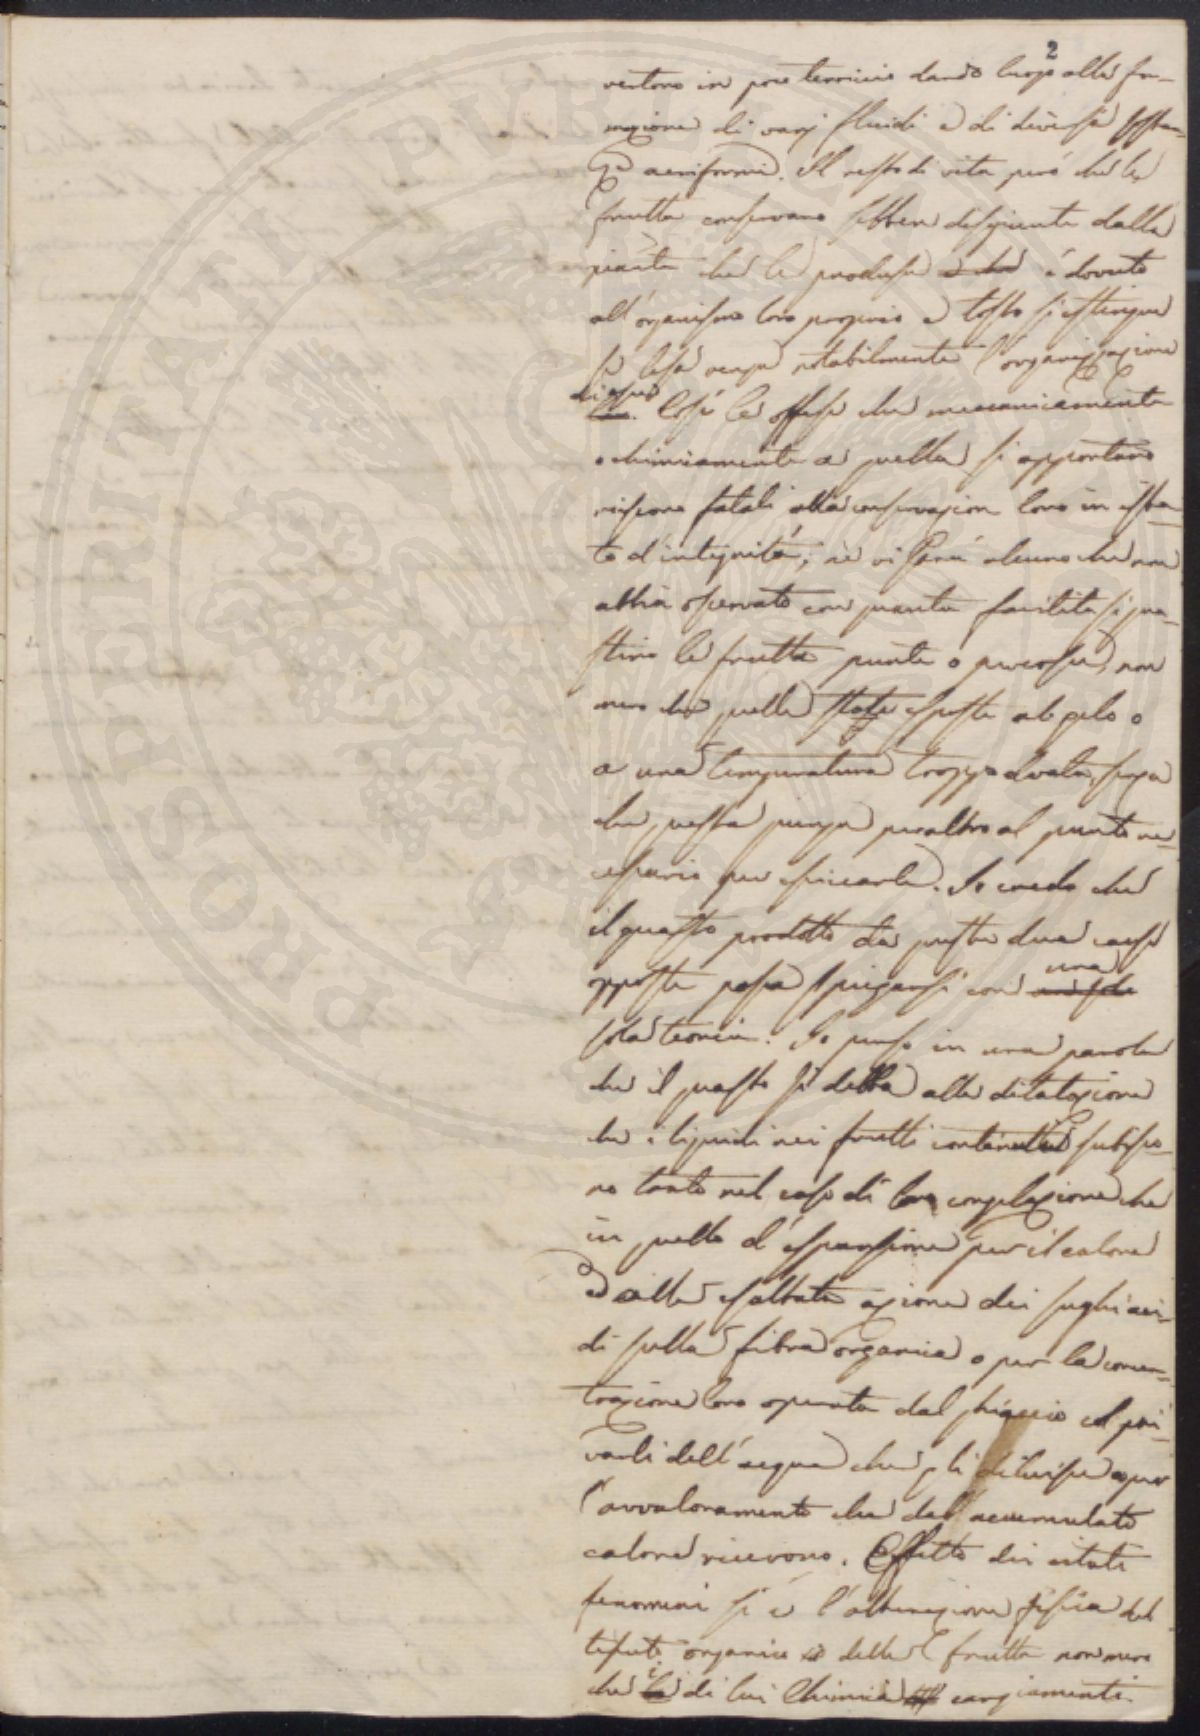 2
vertono in poco terriccio dando luogo alla for-
mazione di varj fluidi e di diverse sostan-
ze aeriformi. Il resto di vita però che le
frutta conservano sebben disgiunte dalla
pianta che le produsse è dovuto
all'organismo loro proprio e tosto si estingue
se lesa venga notabilmente l'organizzazione
di esse. Così le offese che meccanicamente
o chimicamente a quelle si apportano
riescono fatali alla conservazion loro in ista-
to d'integrità; nè vi sarà alcuno che non
abbia osservato con quanta facilità si gua-
stino le frutta punte o percosse, non
meno che quelle state esposte al gelo o
a una temperatura troppo elevata, senza
che questa giunga peraltro al punto ne-
cessario per essiccarle. Io credo che
il guasto prodotto da queste due cause
opposte possa spiegarsi con una
sola teoria. Io penso in una parola
che il guasto si debba alla dilatazione
che i liquidi nei frutti contenuti subisco-
no tanto nel caso di loro congelazione che
in quello d'espansione per il calore
ed alla esaltata azione dei sughi aci-
di sulla fibra organica o per la concen-
trazione loro operata dal ghiaccio col pri-
varli dell'acqua che gli diluisce o per
l'avvaloramento che dal accumulato
calore ricevono. Effetto dei citati
fenomeni si è l'alterazione fisica del
tessuto organico delle frutta non meno
che i di lui chimici cangiamenti.